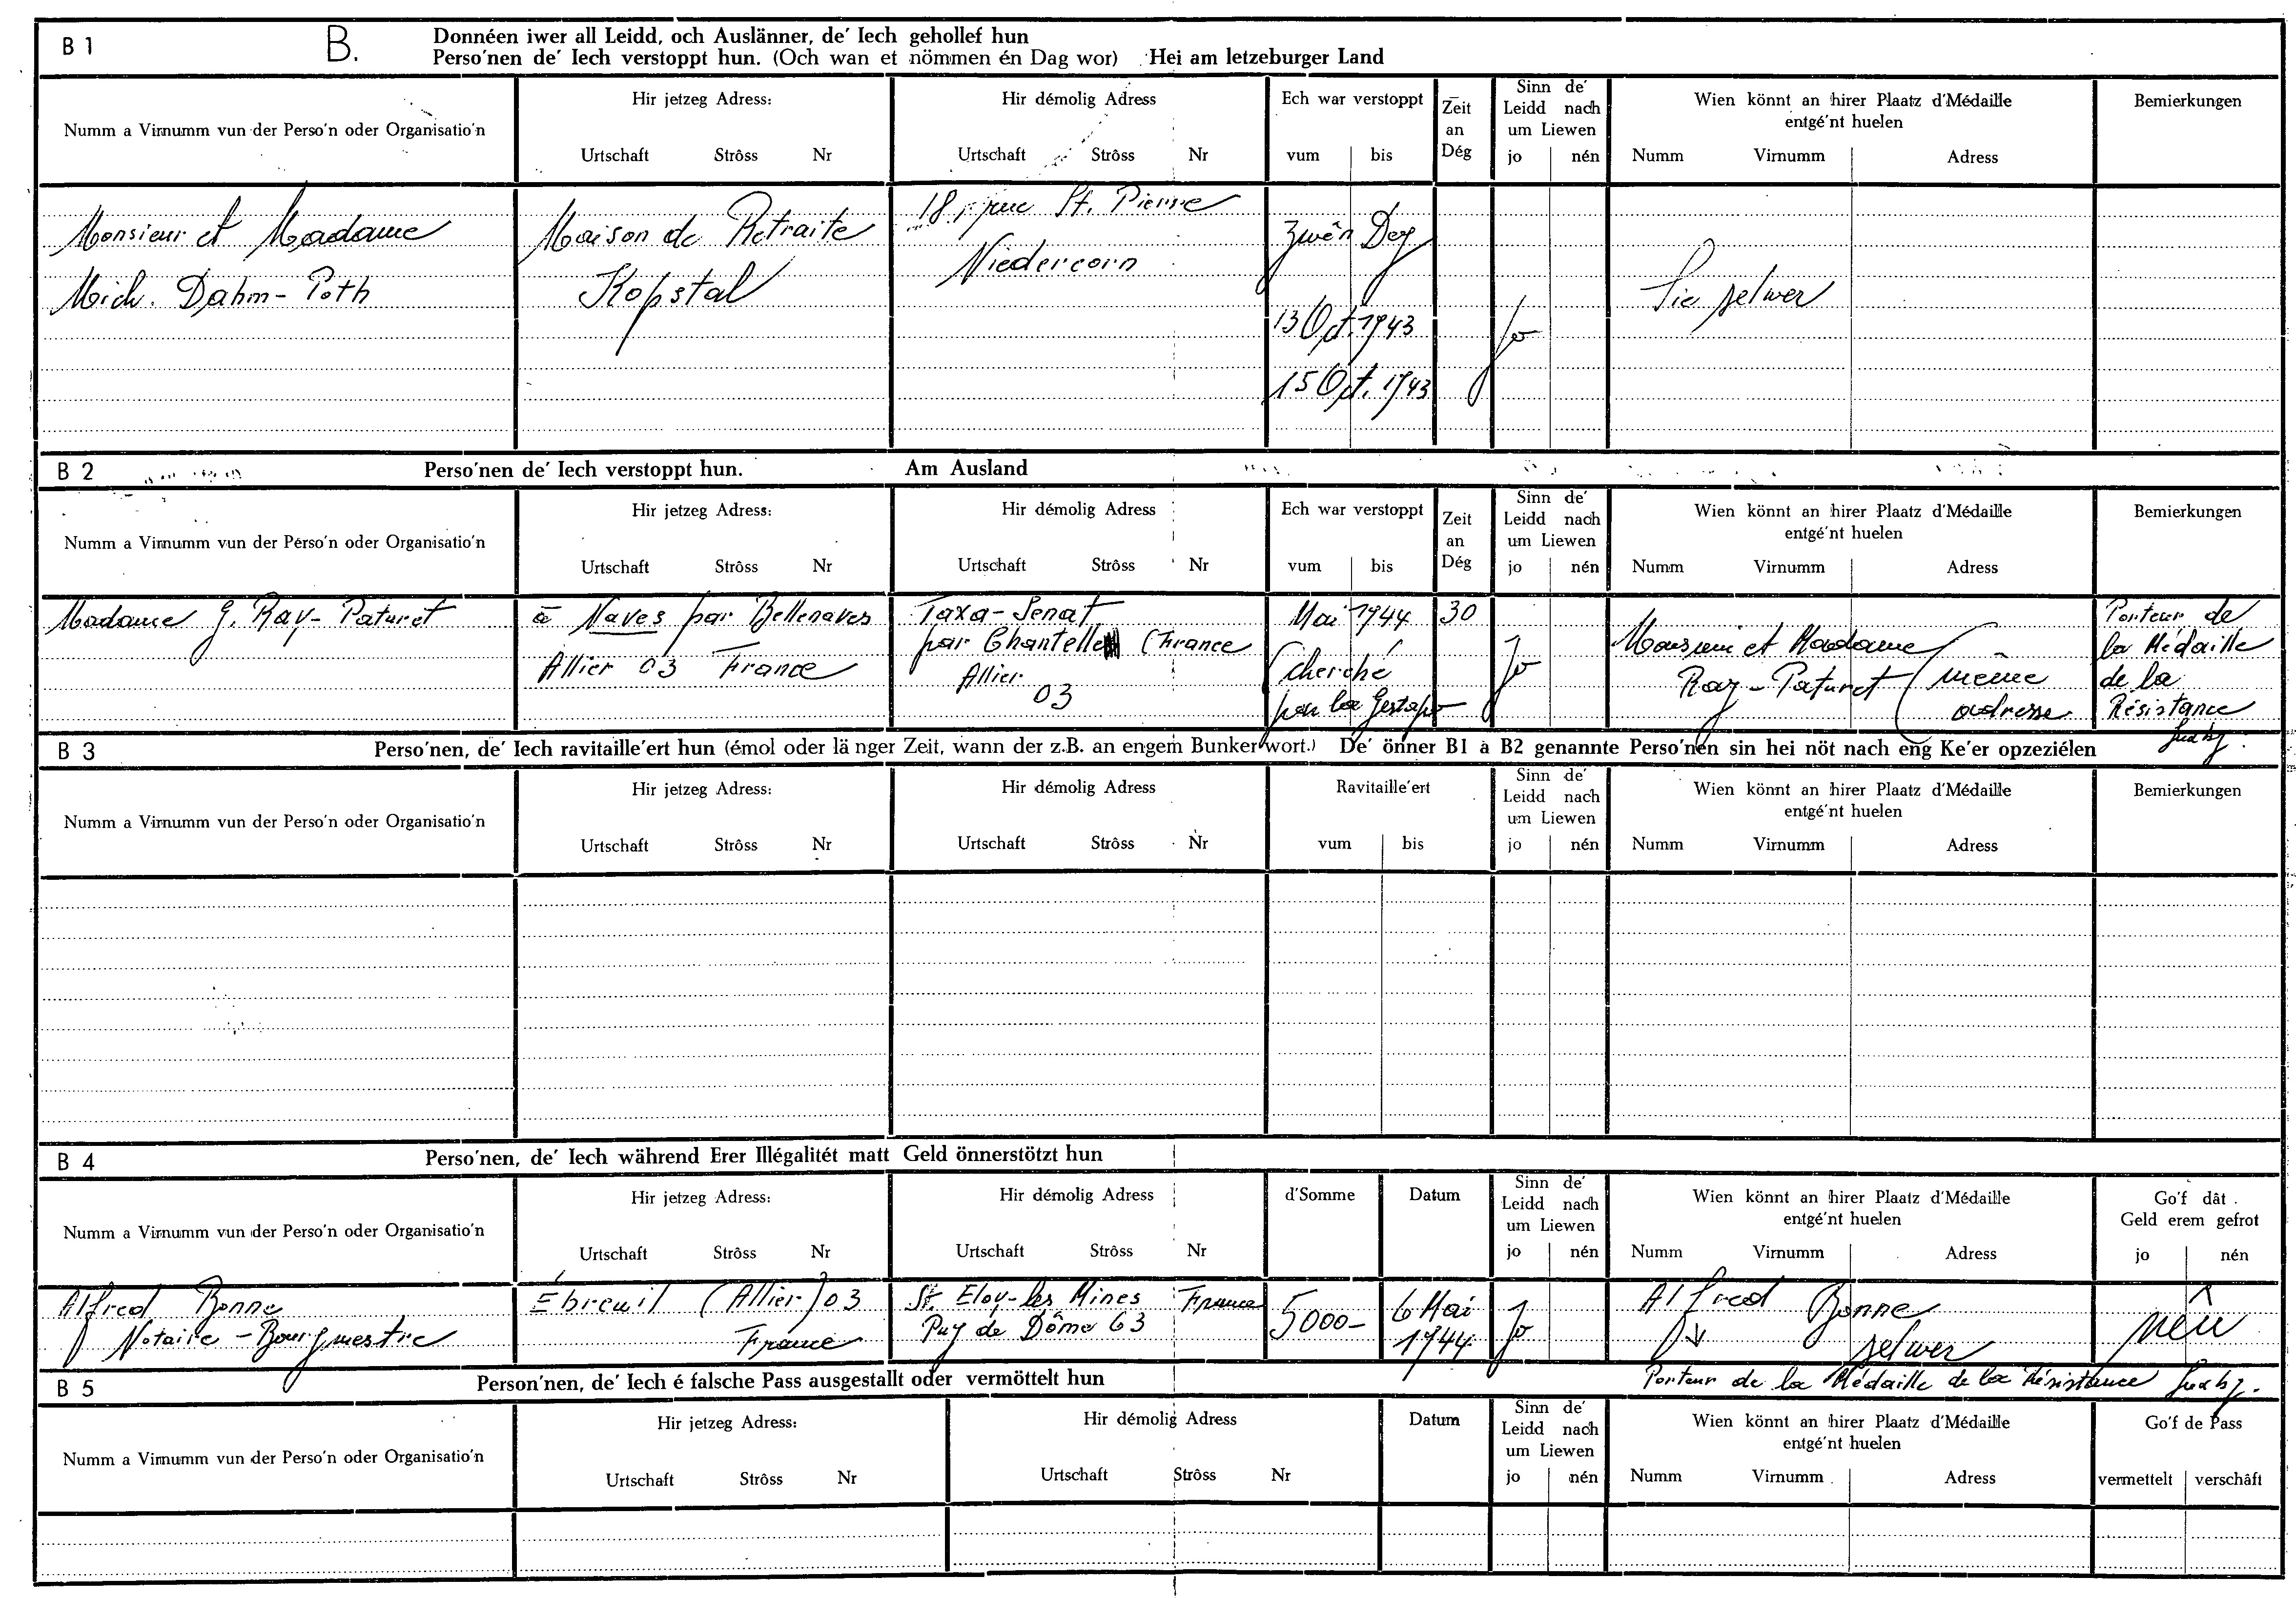 B 1
B.
Donnéen iwer all Leidd, och Auslänner, de' Iech gehollef hun
Perso'nen de' Iech verstoppt hun. (Och wan et nömmen én Dag wor) Hei am letzeburger Land
Numm a Virnumm vun der Perso'n oder Organisatio'n
Hir jetzeg Adress:
Urtschaft Strôss Nr
Hir démolig Adress
Urtschaft Strôss Nr
Ech war verstoppt
vum bis
Zeit
an
Dég
Sinn de'
Leidd nach
um Liewen
jo nén
Wien könnt an hirer Plaatz d'Médaille
entgé'nt huelen
Numm Virnumm Adress
Bemierkungen
Monsieur et Madame
Mich. Dahm-Poth
Maison de Retraite
Kopstal
18, rue St. Pierre
Niedercorn
Zwên Deg
13 Oct. 1943
15 Oct. 1943
jo
Sie selwer
B 2
Perso'nen de' Iech verstoppt hun. Am Ausland
Numm a Virnumm vun der Perso'n oder Organisatio'n
Hir jetzeg Adress:
Urtschaft Strôss Nr
Hir démolig Adress
Urtschaft Strôss Nr
Ech war verstoppt
vum bis
Zeit
an
Dég
Sinn de'
Leidd nach
um Liewen
jo nén
Wien könnt an hirer Plaatz d'Médaille
entgé'nt huelen
Numm Virnumm Adress
Bemierkungen
Madame G. Ray-Paturet
à Naves par Bellenaves
Allier 03 France
Taxa-Senat
par Chantelle (France
Allier
03
Mai 1944
(cherché
par la Gestapo
30
jo
Monsieur et Madame
Ray-Paturet
(même
adresse
Porteur de
la Médaille
de la
Résistance
B 3
Perso'nen, de' Iech ravitaille'ert hun (émol oder länger Zeit, wann der z.B. an engem Bunker wort.) De' önner B1 à B2 genannte Perso'nen sin hei nöt nach eng Ke'er opzeziélen
Numm a Virnumm vun der Perso'n oder Organisatio'n
Hir jetzeg Adress:
Urtschaft Strôss Nr
Hir démolig Adress
Urtschaft Strôss Nr
Ravitaille'ert
vum bis
Sinn de'
Leidd nach
um Liewen
jo nén
Wien könnt an hirer Plaatz d'Médaille
entgé'nt huelen
Numm Virnumm Adress
Bemierkungen
B 4
Perso'nen, de' Iech während Erer Illégalitét matt Geld önnerstötzt hun
Numm a Virnumm vun der Perso'n oder Organisatio'n
Hir jetzeg Adress:
Urtschaft Strôss Nr
Hir démolig Adress
Urtschaft Strôss Nr
d'Somme
Datum
Sinn de'
Leidd nach
um Liewen
jo nén
Wien könnt an hirer Plaatz d'Médaille
entgé'nt huelen
Numm Virnumm Adress
Go'f dât
Geld erem gefrot
jo nén
Alfred Bonne
Notaire - Bourgmestre
Ébreuil (Allier) 03
France
St. Eloy-les Mines France
Puy de Dôme 63
5000-
6 Mai
1944
jo
Alfred Bonne
selwer
nén
Porteur de la Médaille de la Résistance
B 5
Person'nen, de' Iech é falsche Pass ausgestallt oder vermöttelt hun
Numm a Virnumm vun der Perso'n oder Organisatio'n
Hir jetzeg Adress:
Urtschaft Strôss Nr
Hir démolig Adress
Urtschaft Strôss Nr
Datum
Sinn de'
Leidd nach
um Liewen
jo nén
Wien könnt an hirer Plaatz d'Médaille
entgé'nt huelen
Numm Virnumm Adress
Go'f de Pass
vermettelt verschâft